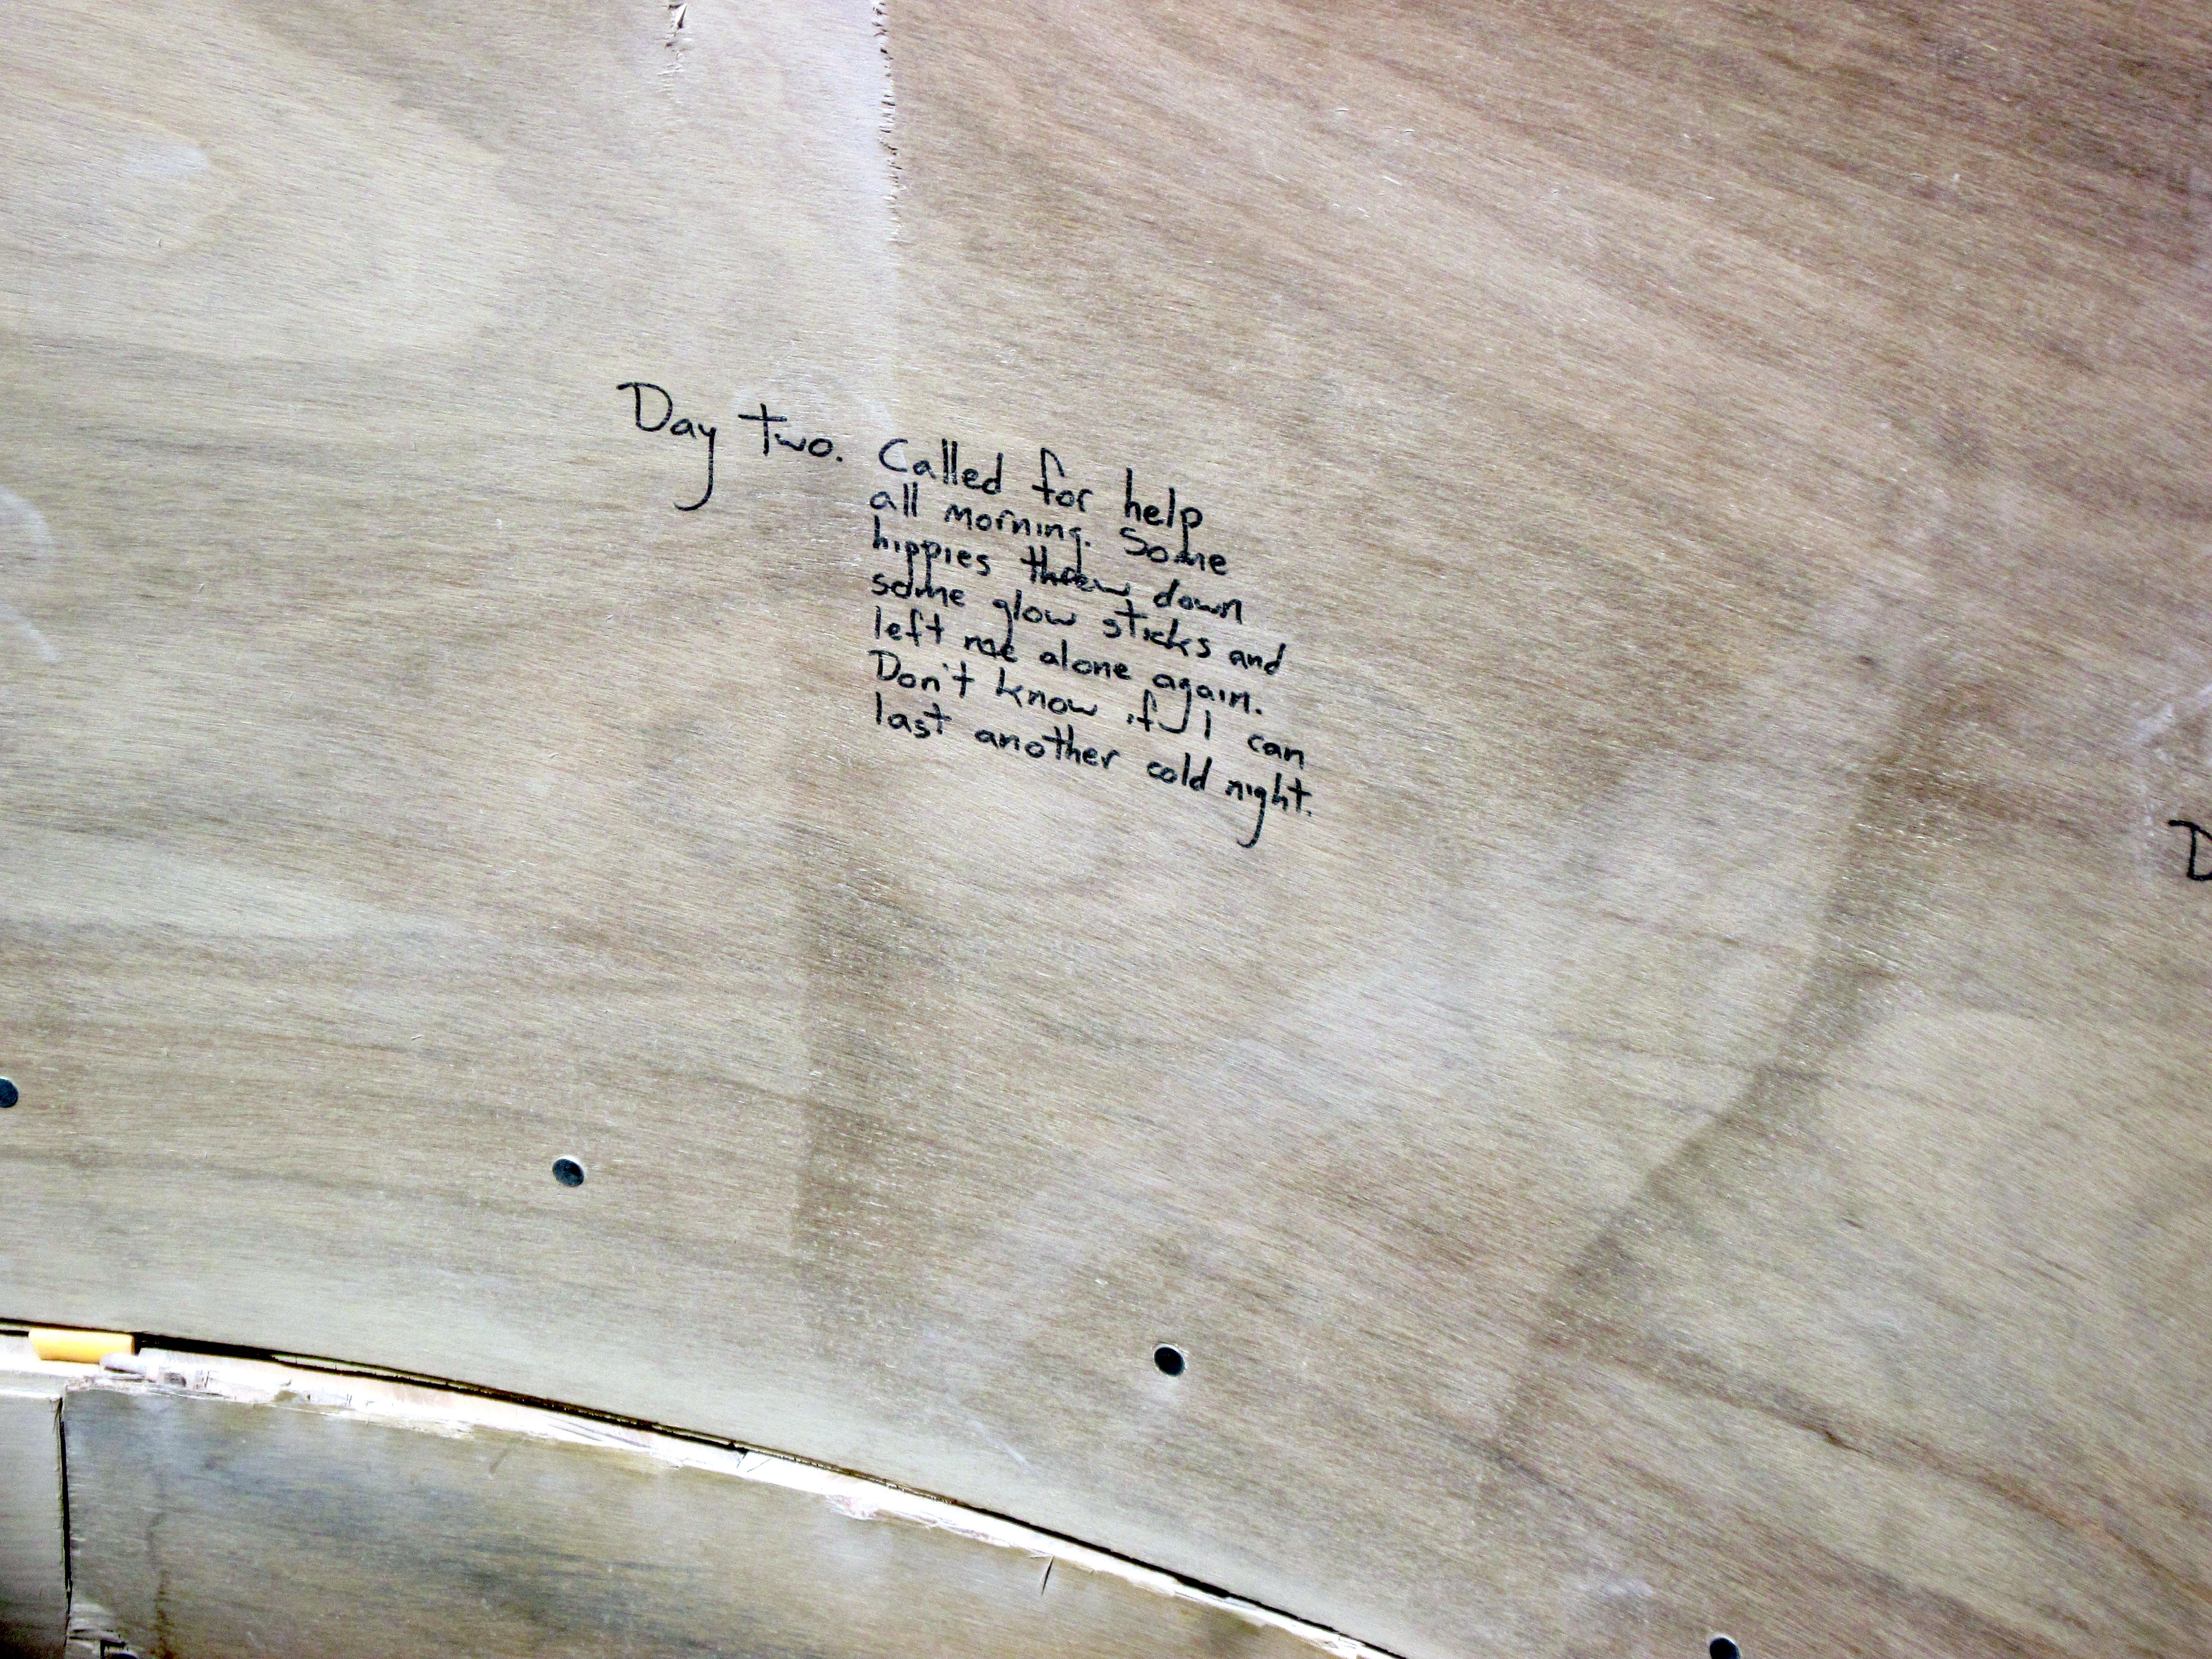 Day two. Called for help
all morning. Some
hippies threw down
some glow sticks and
left me alone again.
Don't know if I can
last another cold night.
D